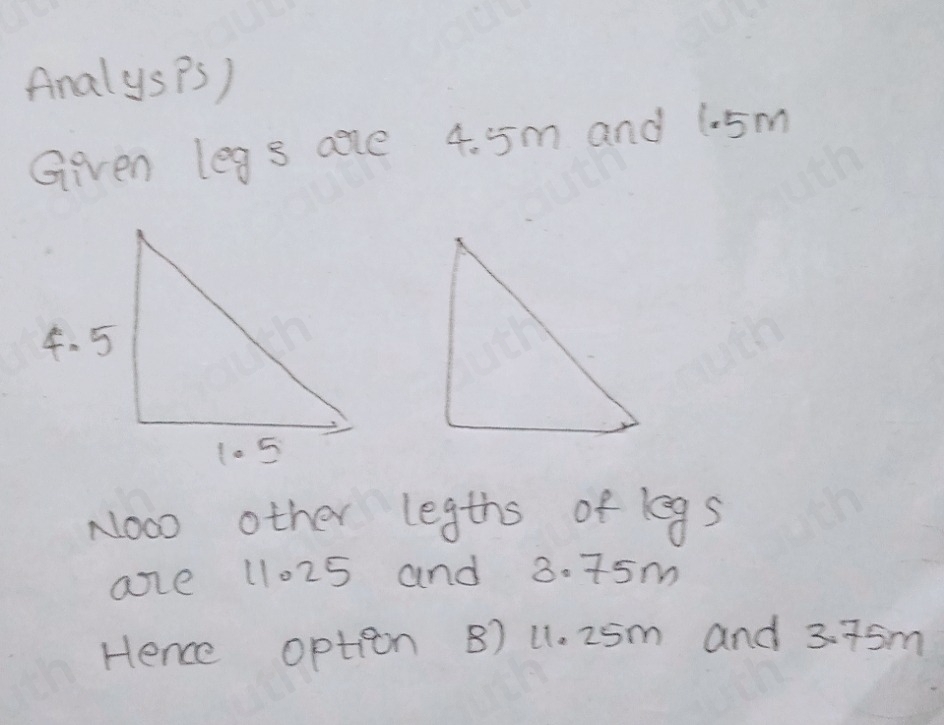 Analysis)
Given legs are 4.5m and 1.5m
4.5
1.5
Now other legths of legs
are 11.25 and 3.75m
Hence option B) 11.25m and 3.75m